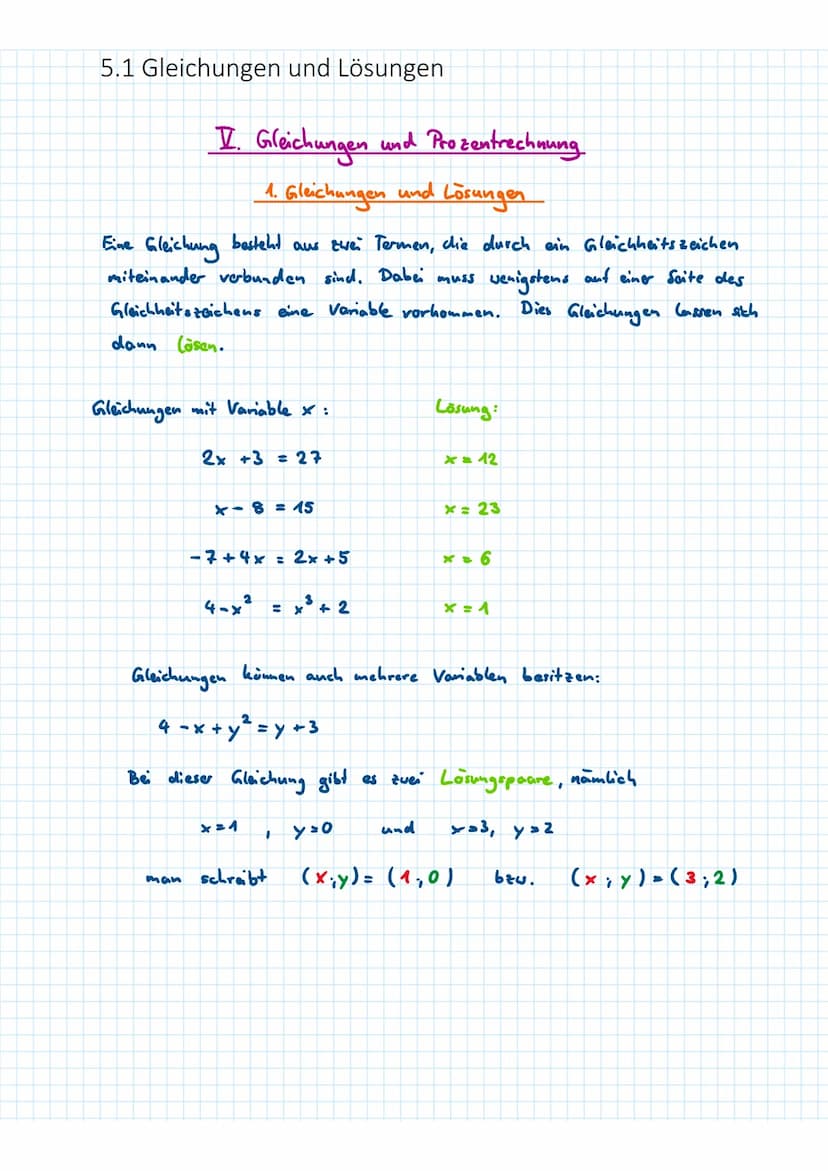 5.1 Gleichungen und Lösungen
V. Gleichungen und Prozentrechnung
1. Gleichungen und Lösungen
Eine Gleichung besteht aus zwei Termen, die durch ein Gleichheitszeichen
miteinander verbunden sind. Dabei muss wenigstens auf einer Seite des
Gleichheitszeichens eine Variable vorkommen. Dies Gleichungen lassen sich
dann lösen.
Gleichungen mit Variable x : Lösung:
2x + 3 = 27 x = 12
x - 8 = 15 x = 23
-7 + 4x = 2x + 5 x = 6
4 - x² = x³ + 2 x = 1
Gleichungen können auch mehrere Variablen besitzen:
4 - x + y² = y + 3
Bei dieser Gleichung gibt es zwei Lösungspaare, nämlich
x = 1 , y = 0 und x = 3, y = 2
man schreibt (x;y) = (1;0) bzw. (x;y) = (3;2)